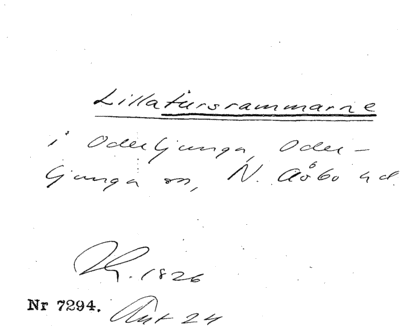 Lillatursrammarne
i Oderljunga, Oder-
ljunga sn, N. Åsbo hd.
1826
Nr 7294. Akt 24